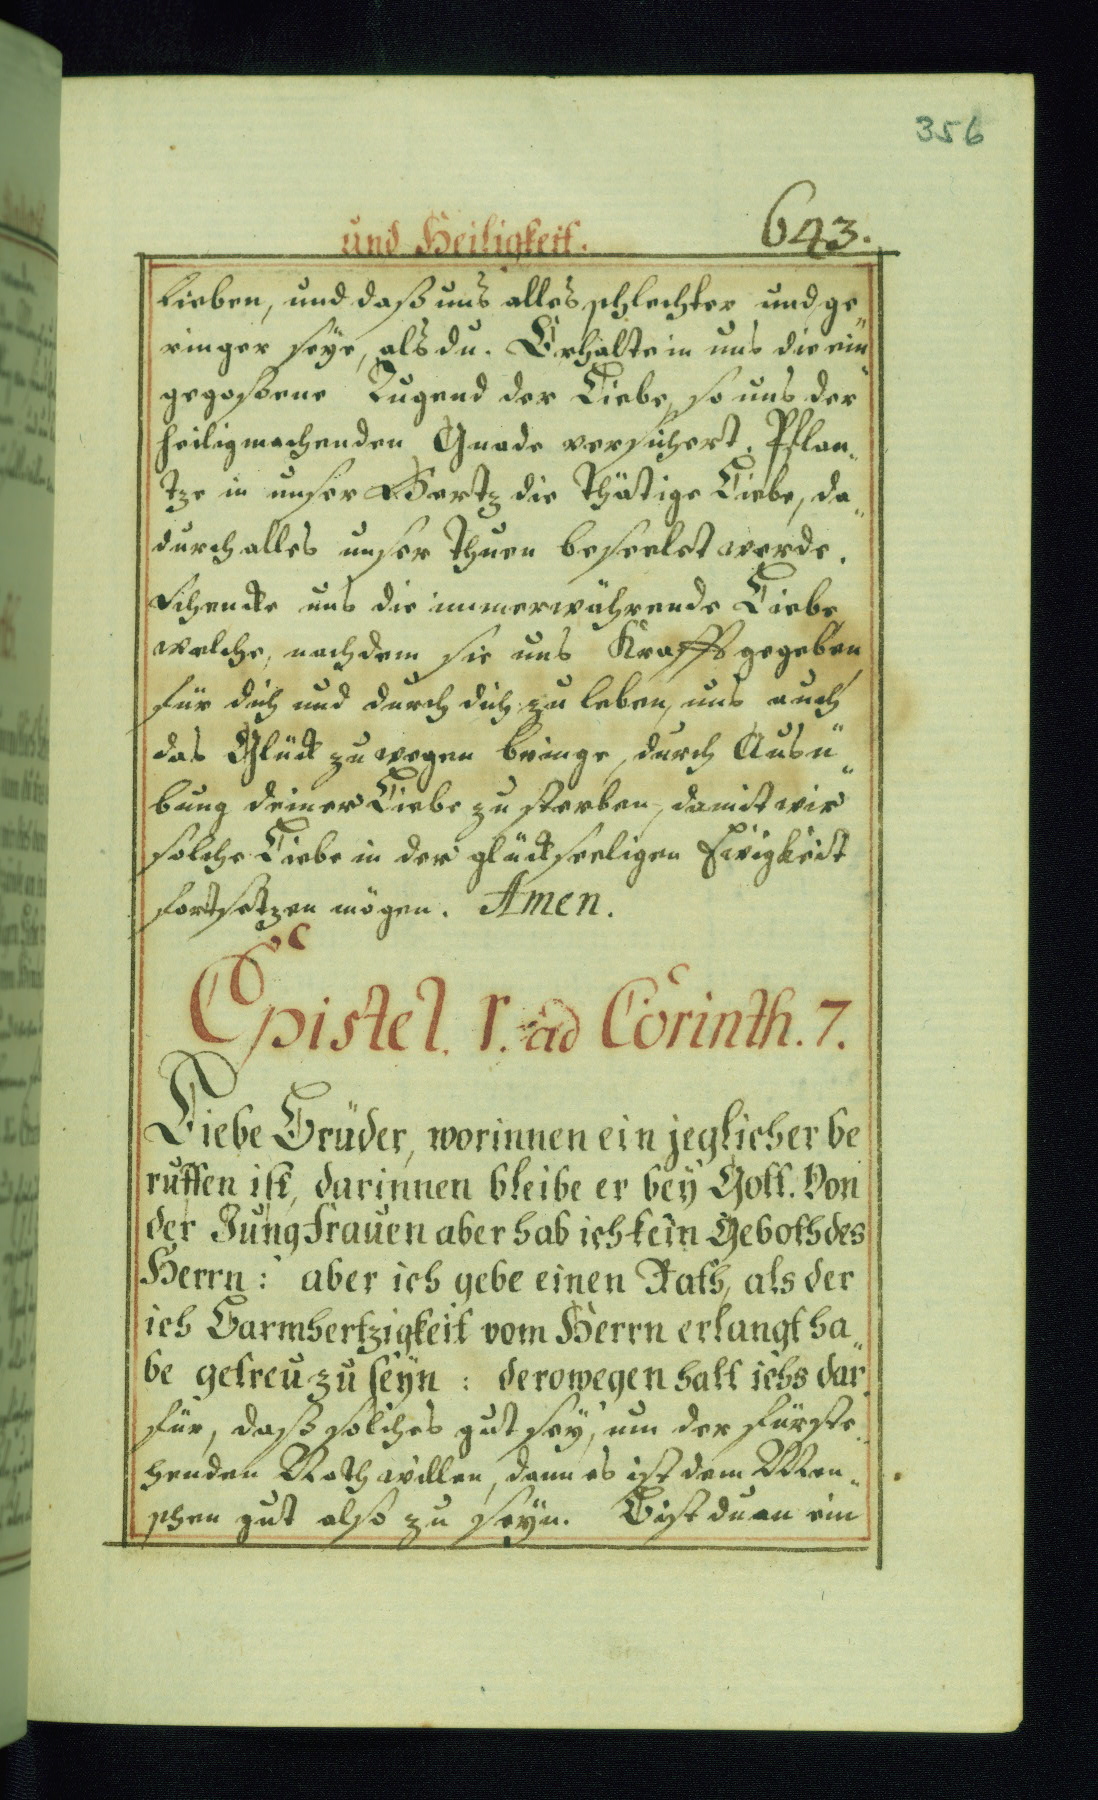 356
und Heiligkeit. 643.
lieben, und daß uns alles schlechter und ge„
ringer seÿe, als du. Erhalte in uns die ein„
gegossene Tugend der Liebe, so uns der
heiligmachenden Gnade versichert. Pflan„
tze in unser Hertz die Thätige Liebe, da„
durch alles unser Thuen beseelet werde.
Schencke uns die immerwährende Liebe
welche, nachdem sie uns Krafft gegeben
für dich und durch dich zu leben, uns auch
das Glück zuwegen bringe, durch Ausü„
bung deiner Liebe zu sterben, damit wir
solche Liebe in der glückseeligen Ewigkeit
fortsetzen mögen. Amen.
Epistel. 1. ad Corinth. 7.
Liebe Brüder, worinnen ein jeglicher be
ruffen ist, darinnen bleibe er beÿ Gott. Von
der Jungfrauen aber hab ich kein Geboth des
Herrn: aber ich gebe einen Rath, als der
ich Barmhertzigkeit vom Herrn erlangt ha„
be getreu zu seÿn: derowegen halt ichs dar
für, daß solches gut seÿ, um der fürste„
henden Noth willen, dann es ist dem Men„
schen gut also zu seÿn. Bist du an ein